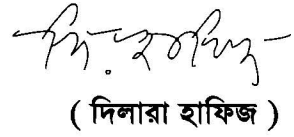 ( দিলারা হাফিজ )